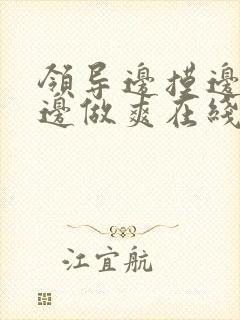 領导邊摸邊
邊做爽在綫
江宜航